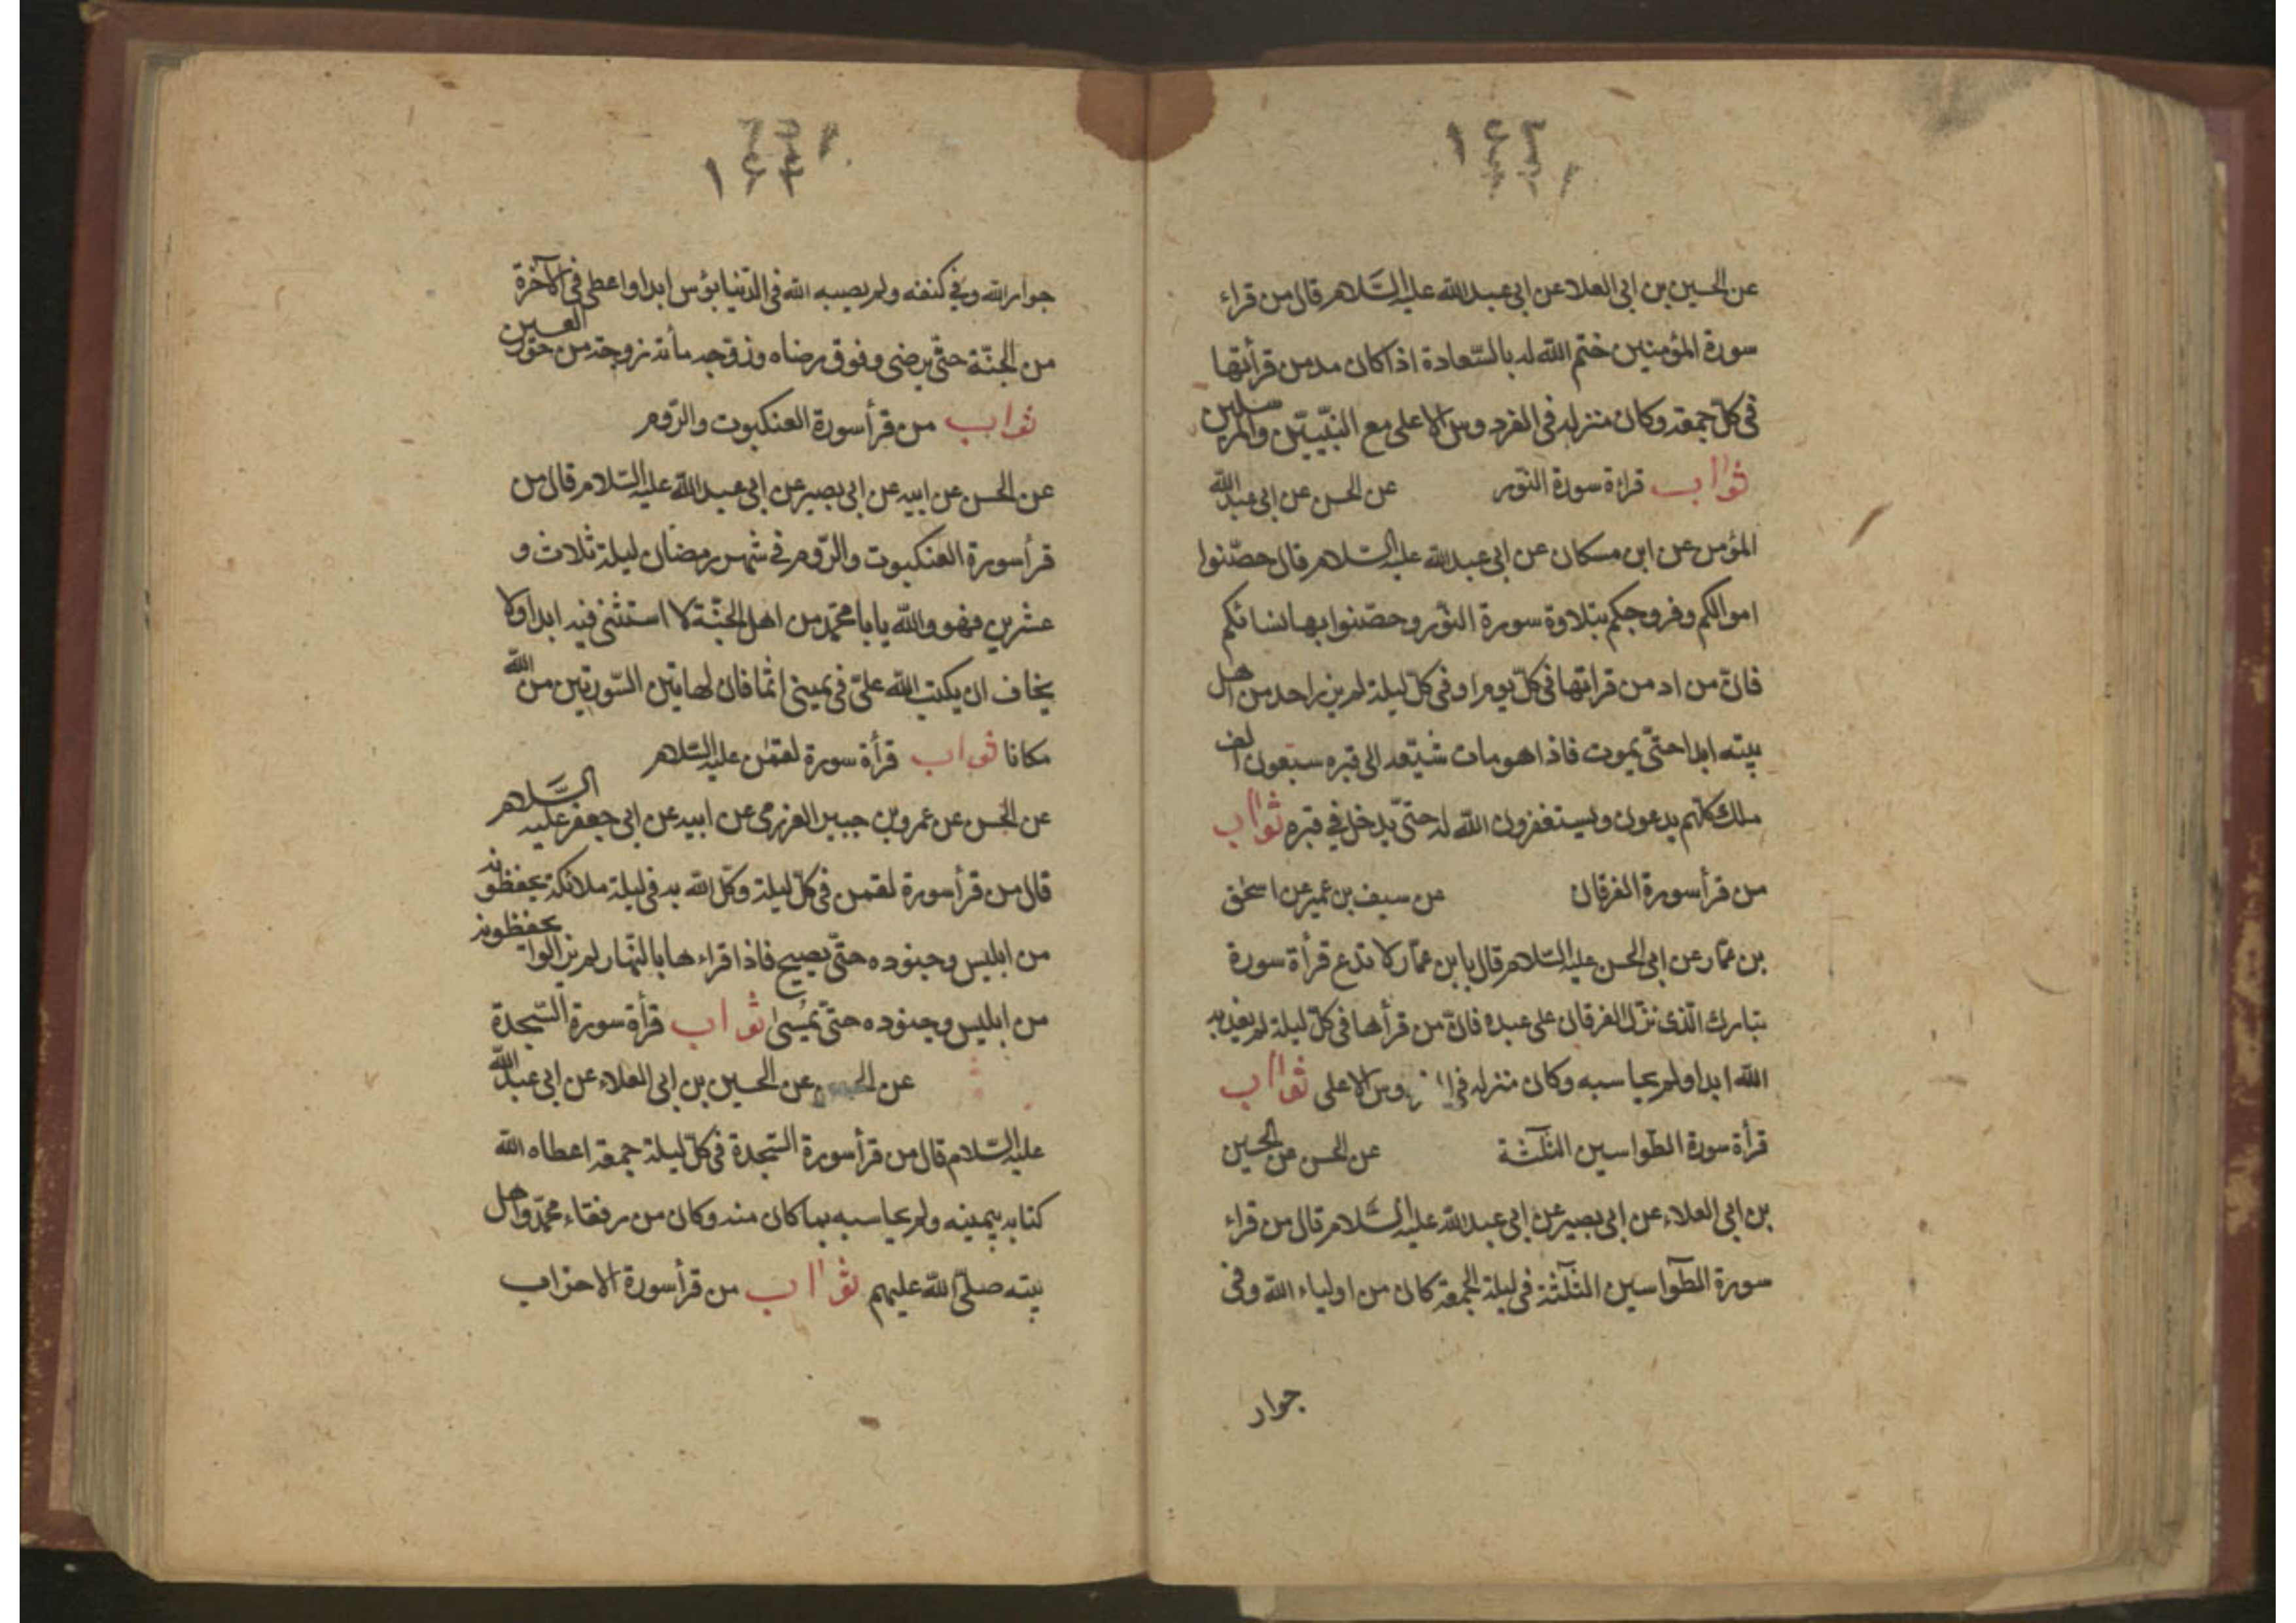 ١٤٣
عن الحسين بن ابى العلا عن ابى عبد الله عليه السّلام قال من قراء
سورة المؤمنين ختم الله له بالسّعادة اذا كان مد من قرأتها
فى كلّ جمعة وكان منزله فى الفردوس الاعلى مع النبّيين والمرسلين
ثواب قراءة سورة النّور عن الحسن عن ابى عبد الله
المؤمن عن ابن مسكان عن ابى عبد الله عليه السلام قال حصّنوا
اموالكم وفروجكم بتلاوة سورة النّور وحصّنوا بها نسائكم
فانّ من اد من قراتها فى كلّ يوم او فى كلّ ليلة لم يزن احد من اهل
بيته ابدا حتّى يموت فاذا هو مات شيّعه الى قبره سبعون الف
ملك كلّهم يدعون ويستغفرون الله له حتّى يدخل فى قبره ثواب
من قرأ سورة الفرقان عن سيف بن عمير عن اسحٰق
بن عمّار عن ابى الحسن عليه السّلام قال يابن عمّار لا تدع قرأة سورة
تبارك الّذى نزّل الفرقان على عبده فانّ من قرأها فى كلّ ليلة لم يعذبه
الله ابدا ولم يحاسبه وكان منزله وس الاعلى ثواب
قرأة سورة الطواسين الثلٰثة عن الحسن عن الحسين
بن ابى العلاء عن ابى بصير عن ابى عبد الله عليه السَّلام قال من قراء
سورة الطّواسين الثلٰثة فى ليلة الجمعة كان من اولياء الله وفى
جوار
١٤٤
جوار الله وفى كنفه ولم يصيبه الله فى الدّنيا بؤس ابدا واعطى فى الآخرة
من الجنّة حتّى يرضى وفوق رضاه وزوّجه مأته زوجة من حور العين
ثواب من قرأ سورة العنكبوت والرّوم
عن الحسن عن ابيه عن ابى بصير عن ابى عبد الله عليه السّلام قال من
قرأ سورة العنكبوت والرّوم فى شهر رمضان ليلة ثلاث و
عشرين فهو والله يابا محمّد من اهل الجنّة لا استثنى فيه ابدا ولا
يخاف ان يكتب الله علىّ فى يمينى اثما فان لهاتين السّورتين من الله
مكانا ثواب قرأة سورة لقمٰن عليه السّلام
عن الحسن عن عمرو بن جبير العزرمى عن ابيه عن ابى جعفر عليه السَّلام
قال من قرأ سورة لقمن فى كلّ ليلة وكّل الله به فى ليلة ملائكة يحفظونه
من ابليس وجنوده حتّى يصبح فاذا قراءها بالنّهار لم يزالوا يحفظونه
من ابليس وجنوده حتّى يمسى ثواب قرأة سورة السّجدة
عن عن الحسين بن ابى العلاء عن ابى عبد الله
عليه السّلام قال من قرأ سورة السّجدة فى كلّ ليلة جمعة اعطاه الله
كتابه بيمينه ولم يحاسبه بما كان منه وكان من رفقاء محمّد واهل
بيته صلّى الله عليهم ثواب من قرأ سورة الاحزاب